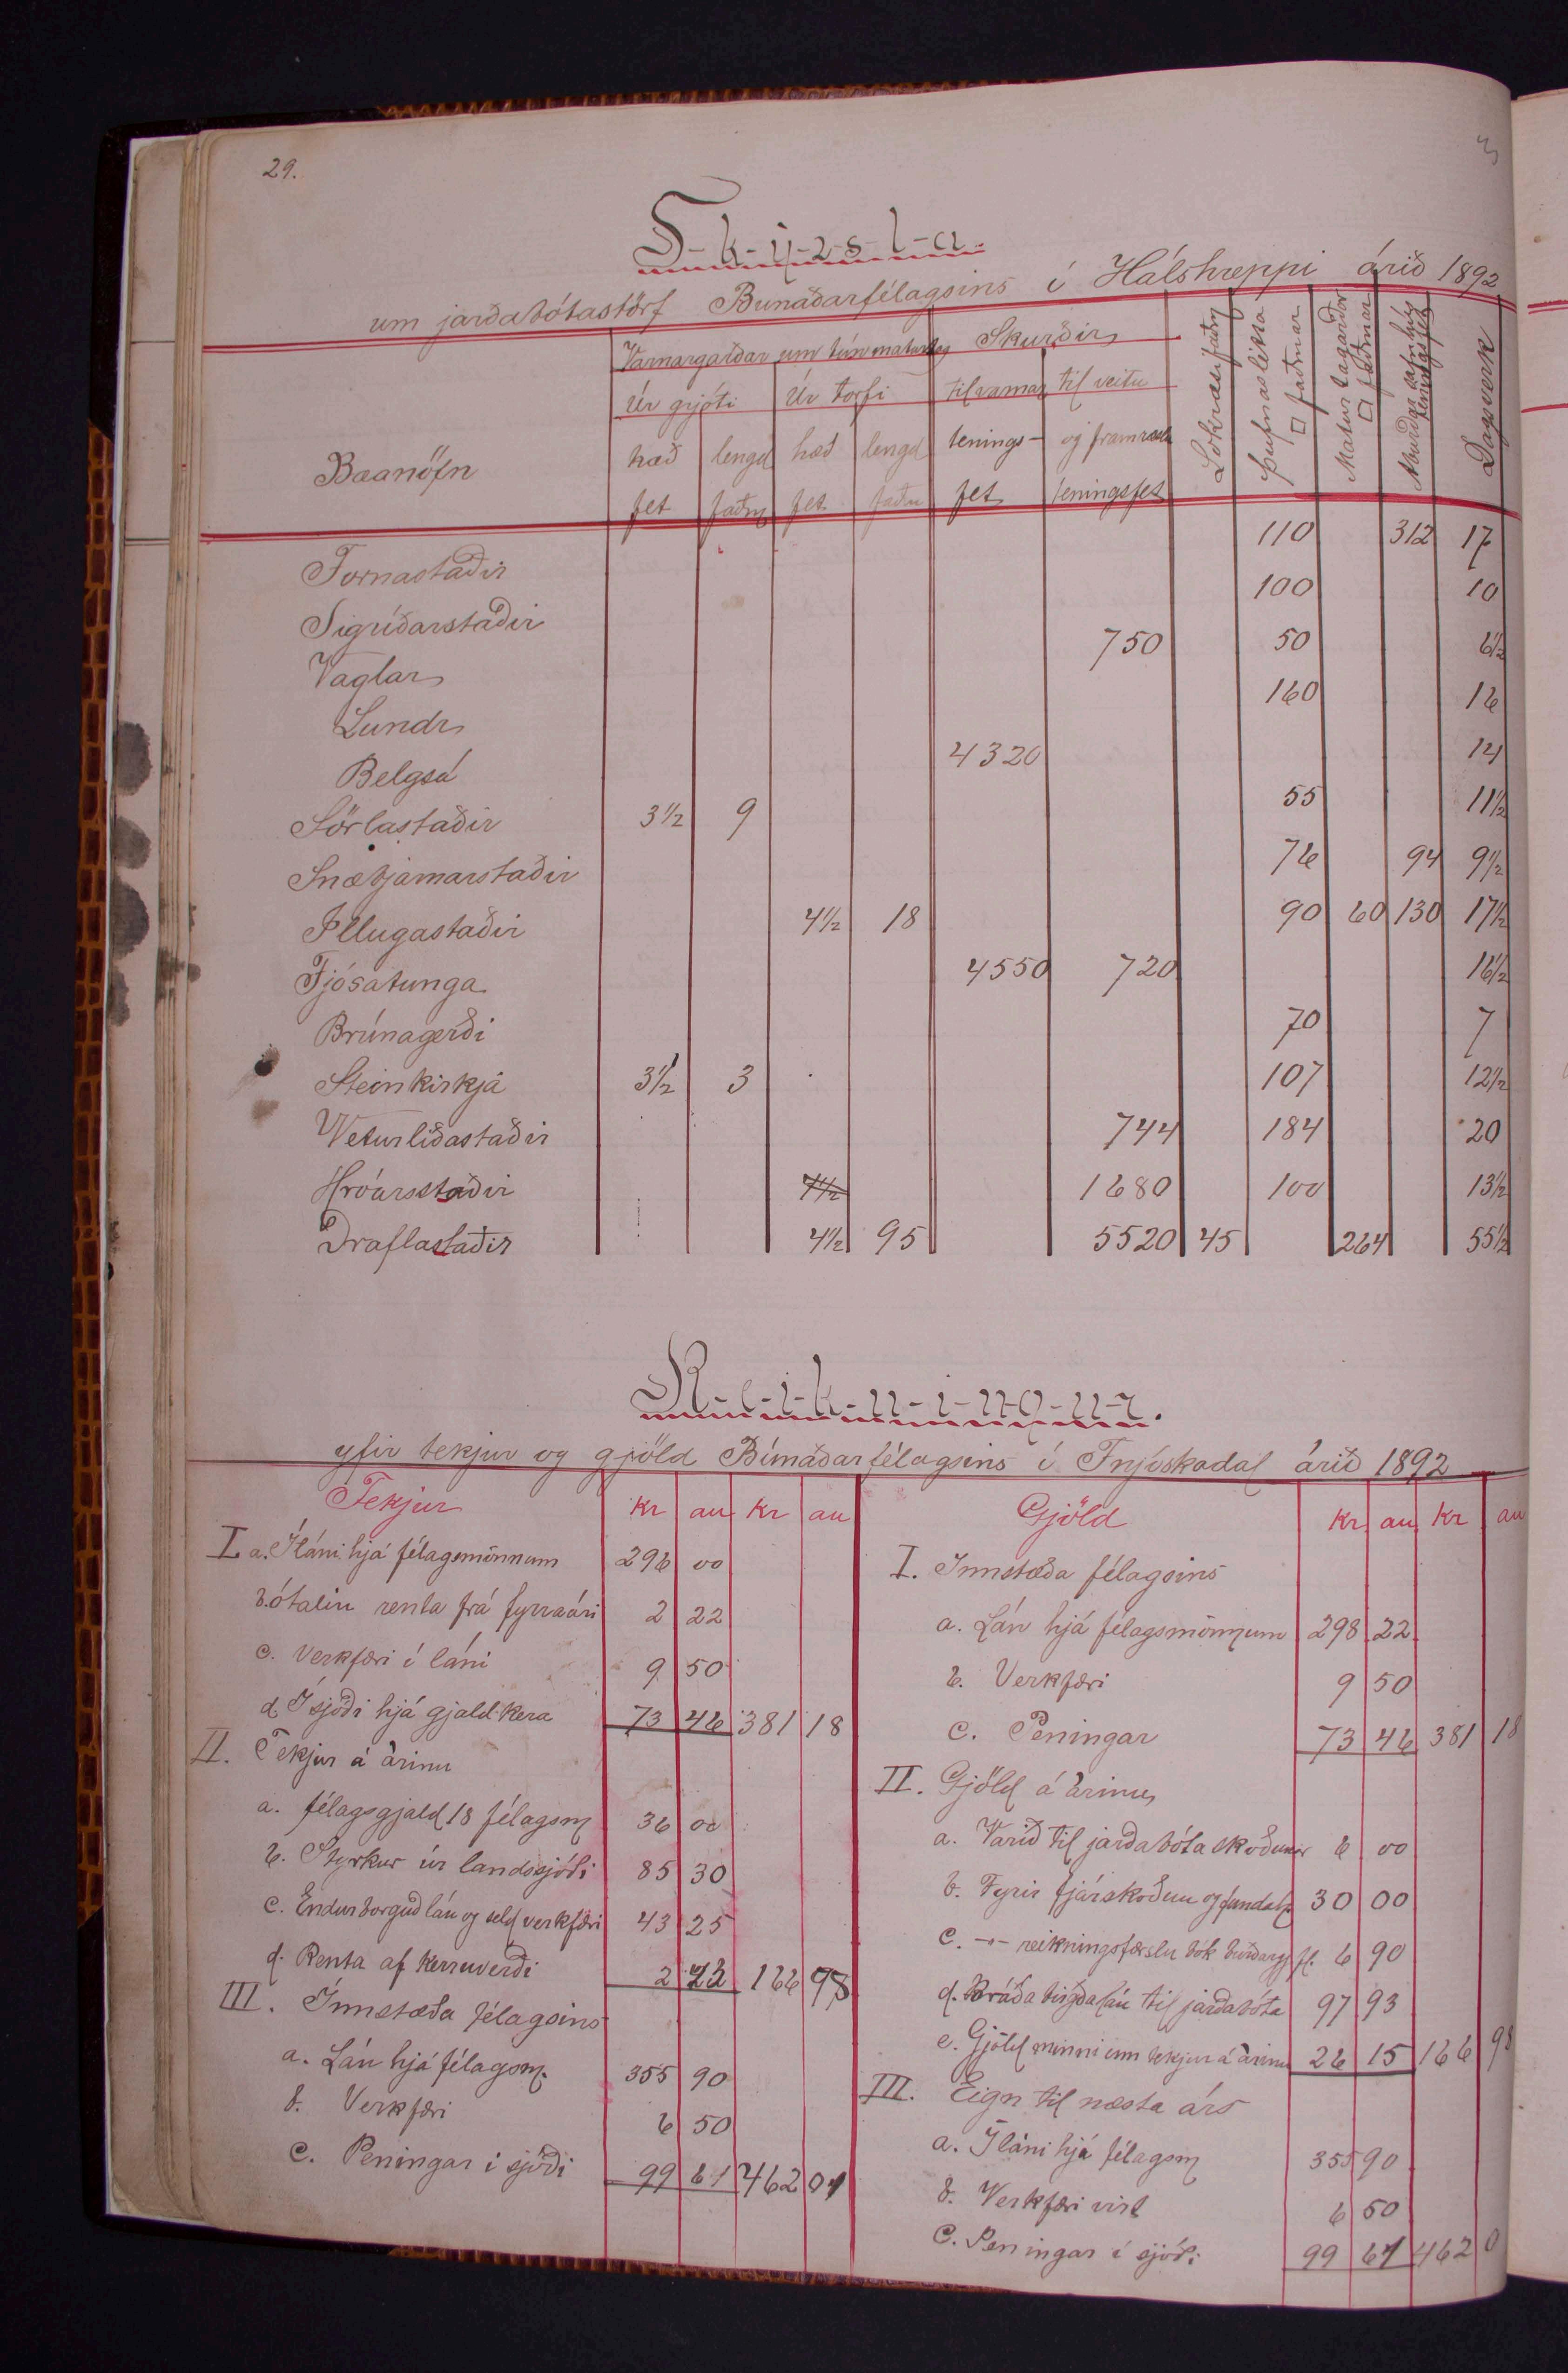 29.
S-k-ý-r-s-l-a.
um jarðabótastörf Bunaðarfélagsins í Hálshreppi árið 1892
Varnargarðar um tún maturtag Skurðir Lokræsi faðm Þufnaslétta □ faðmar Maturtagarðar □ faðmar Áburðar safnhús teningsfet Dagsverk
Úr grjóti Úr torfi til varnar til veitu
Bæanöfn hæð lengd hæd lengd tenings- og framræslu
fet faðm fet. faðm fet teningsfet
Fornastaðir 110 312 17
Sigríðarstaðir 100 10
Vaglar 750 50 6½
Lundr 160 16
Belgsá 4320 14
Sörlastaðir 3½ 9 55 11½
Snæbjarnarstaðir 76 94 9½
Illugastaðir 4½ 18 90 60 130 17½
Fjósatunga 4550 720 16½
Brúnagerði 70 7
Steinkirkja 3½ 3 107 12½
Veturliðastaðir 744 184 20
Hróarsstaðir 4½ 1680 100 13½
Draflastaðir 4½ 95 5520 45 264 55½
R-e-i-k-n-i-n-g-u-r.
yfir tekjur og gjöld Búnaðarfélagsins í Fnjóskadal árið 1892
Tekjur Kr au Kr au
I a. Í láni hjá félagsmönnum 296 00
b. ótalin renta frá fyrra ári 2 22
c. Verkfæri í láni 9 50
d. Í sjóði hjá gjaldkera 73 46 381 18
II. Tekjur á árinu
a. félagsgjald 18 félagsm 36 00
b. Styrkur úr landssjóði 85 30
c. Endurborguð lán og seld verkfæri 43 25
d. Renta af kerruverði 2 43 166 98
III. Innstæða félagsins
a. Lán hjá félagsm. 355 90
b. Verkfæri 6 50
c. Peningar í sjóði 99 61 462 01
Gjöld Kr au Kr au
I. Innstæða félagsins
a. Lán hjá félagsmönnum 298 22
b. Verkfæri 9 50
c. Peningar 73 46 381 18
II. Gjöld á árinu
a. Varið til jarðabóta skoðunar 6 00
b. Fyrir fjárskoðun og 30 00
c. -"- reikningsfærslu bók burðarg fl. 6 90
d. Bráðabirgðalán til jarðabóta 97 93
e. Gjöld minni enn tekjur á árinu 26 15 166 98
III. Eign til næsta árs
a. Í láni hjá félagsm 355 90
b. Verkfæri virt 6 50
c. Peningar í sjóði 99 61 462 0